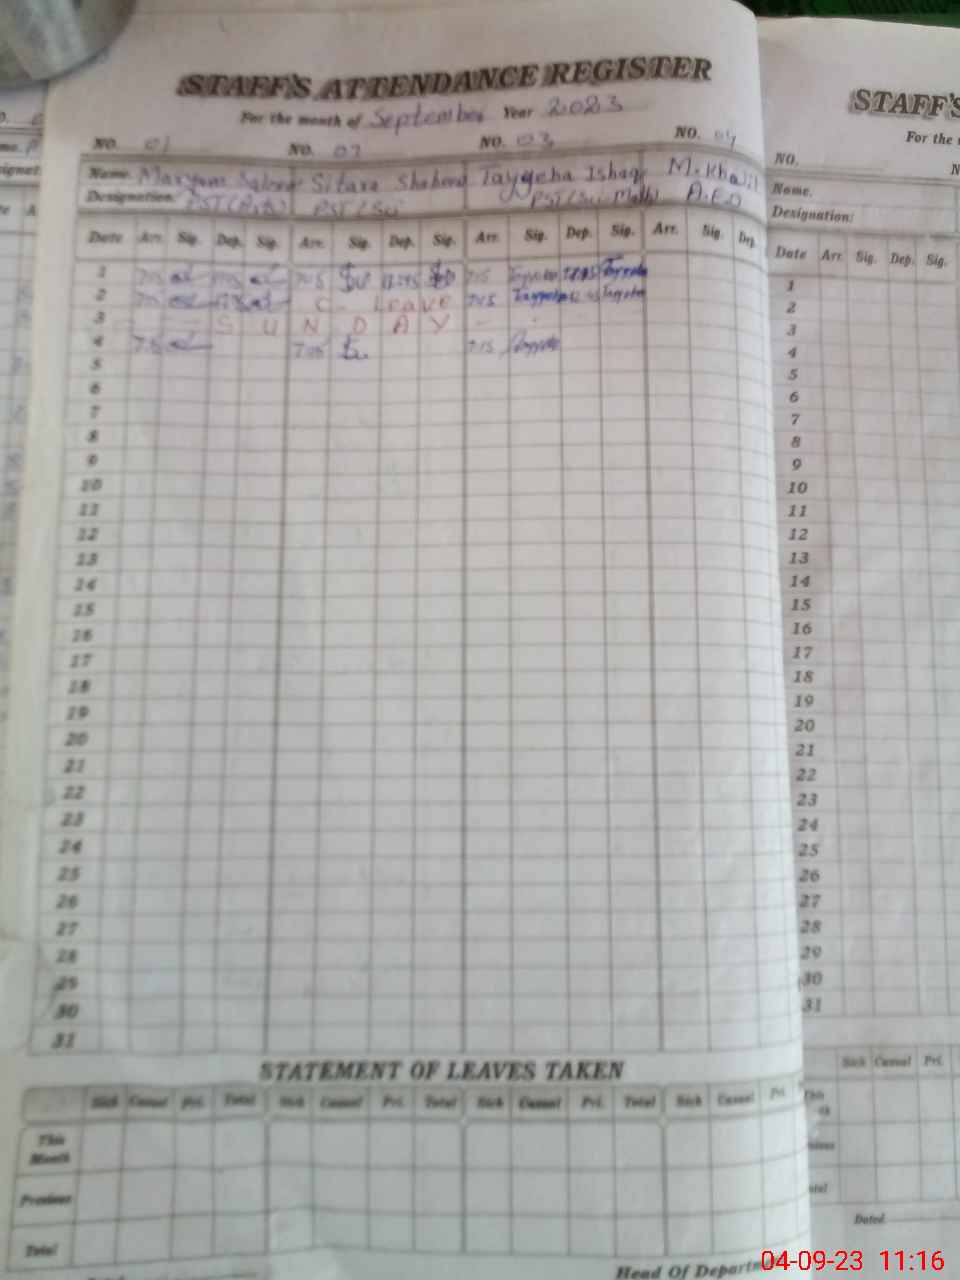 STAFF'S ATTENDANCE REGISTER
For the month of September Year 2023
NO. 01 NO. 02 NO. 03 NO. 04
Name. Maryam Sitara Shaheen Tayyeba Ishaq M. Khalil
Designation: PST PST (Sci PST (Sci-Math) A.E.O
Date Arr. Sig. Dep. Sig. Arr. Sig. Dep. Sig. Arr. Sig. Dep. Sig. Arr. Sig. Dep.
1 715 Tayyeba Tayyeba
2 C- Leave 715 Tayyeba Tayyeba
3 S U N D A Y -
4 715 Tayyeba
5
6
7
8
9
10
11
12
13
14
15
16
17
18
19
20
21
22
23
24
25
26
27
28
29
30
31
STATEMENT OF LEAVES TAKEN
Sick Casual Pri. Total Sick Casual Pri. Total Sick Casual Pri. Total Sick Casual Pri.
This Month
Previous
Total
Head Of Departm
STAFF'S
For the
NO.
Name.
Designation:
Date Arr. Sig. Dep. Sig.
1
2
3
4
5
6
7
8
9
10
11
12
13
14
15
16
17
18
19
20
21
22
23
24
25
26
27
28
29
30
31
Sick Casual Pri.
Dated
04-09-23 11:16